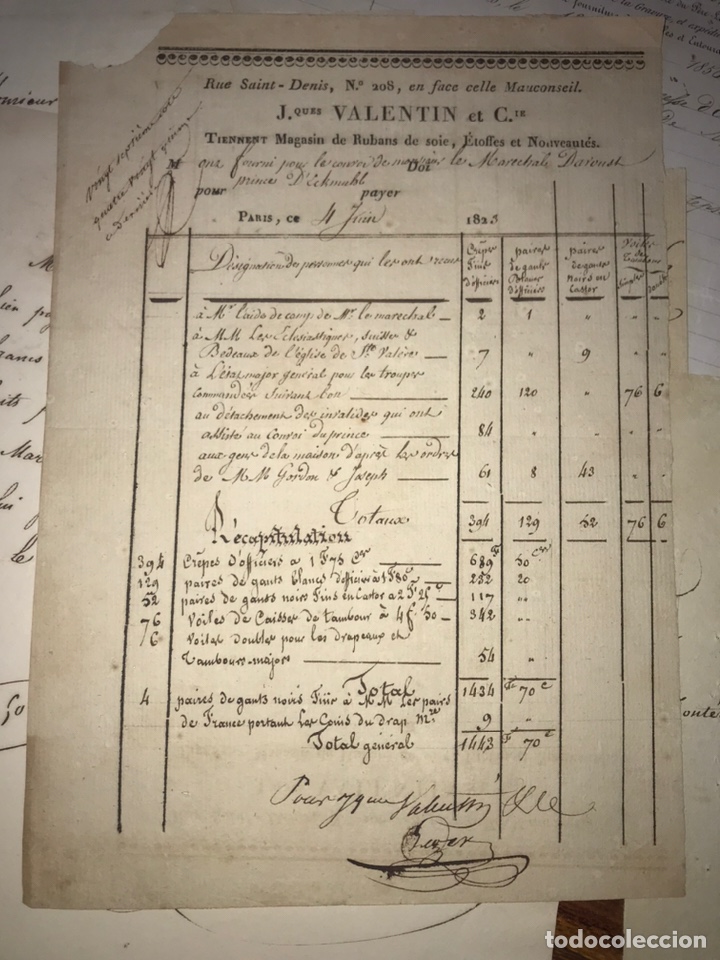 Rue Saint-Denis, N.º 208, en face celle Mauconseil.
J.QUES VALENTIN et C.IE
TIENNENT Magasin de Rubans de soie, Étoffes et Nouveautés.
vingt septieme
quatre vingt
M ont fourni pour le convoi de monsieur le Marechal Davoust
Doit
pour prince D'Eckmuhl payer
PARIS, ce 4 Juin 1823
Désignation des personnes qui les ont reçus
Crêpes fins d'officiers
paires de gants blancs d'officiers
paires de gants noirs en Castor
Voiles de Tambours
simples
doubles
à Mr. l'aide de camp de Mr. le marechal 2 1 "
à MM Les Eclesiastiques, suisse &
Bedeaux de l'église de Ste Valère 7 " 9
à L'état major général pour les troupes
commandés suivant bon 240 120 " 76 6
au détachement des invalides qui ont
assisté au Convoi du prince 84 " "
aux gens de la maison d'après les ordres
de MM Gordon & Joseph 61 8 43
Totaux 394 129 52 76 6
Récapitulation
394 Crêpes d'officiers a 1 F 75 Ces 689 F 50 Ces
129 paires de gants blancs d'officier à 1 F 80 c 232 20
52 paires de gants noirs Fins en Castor a 2 F. 25 c 117 "
76 Voiles de Caisses de tambour à 4 f. 50 342 "
6 Voiles doubles pour les drapeaux et
Tambours-majors 54 "
Total 1434 F 70 c
4 paires de gants noirs Fins à MM Les pairs
de France portant Les Coins du drap mre 9 "
Total général 1443 F 70 c
Pour Jques Valentin & Cie
todocoleccion